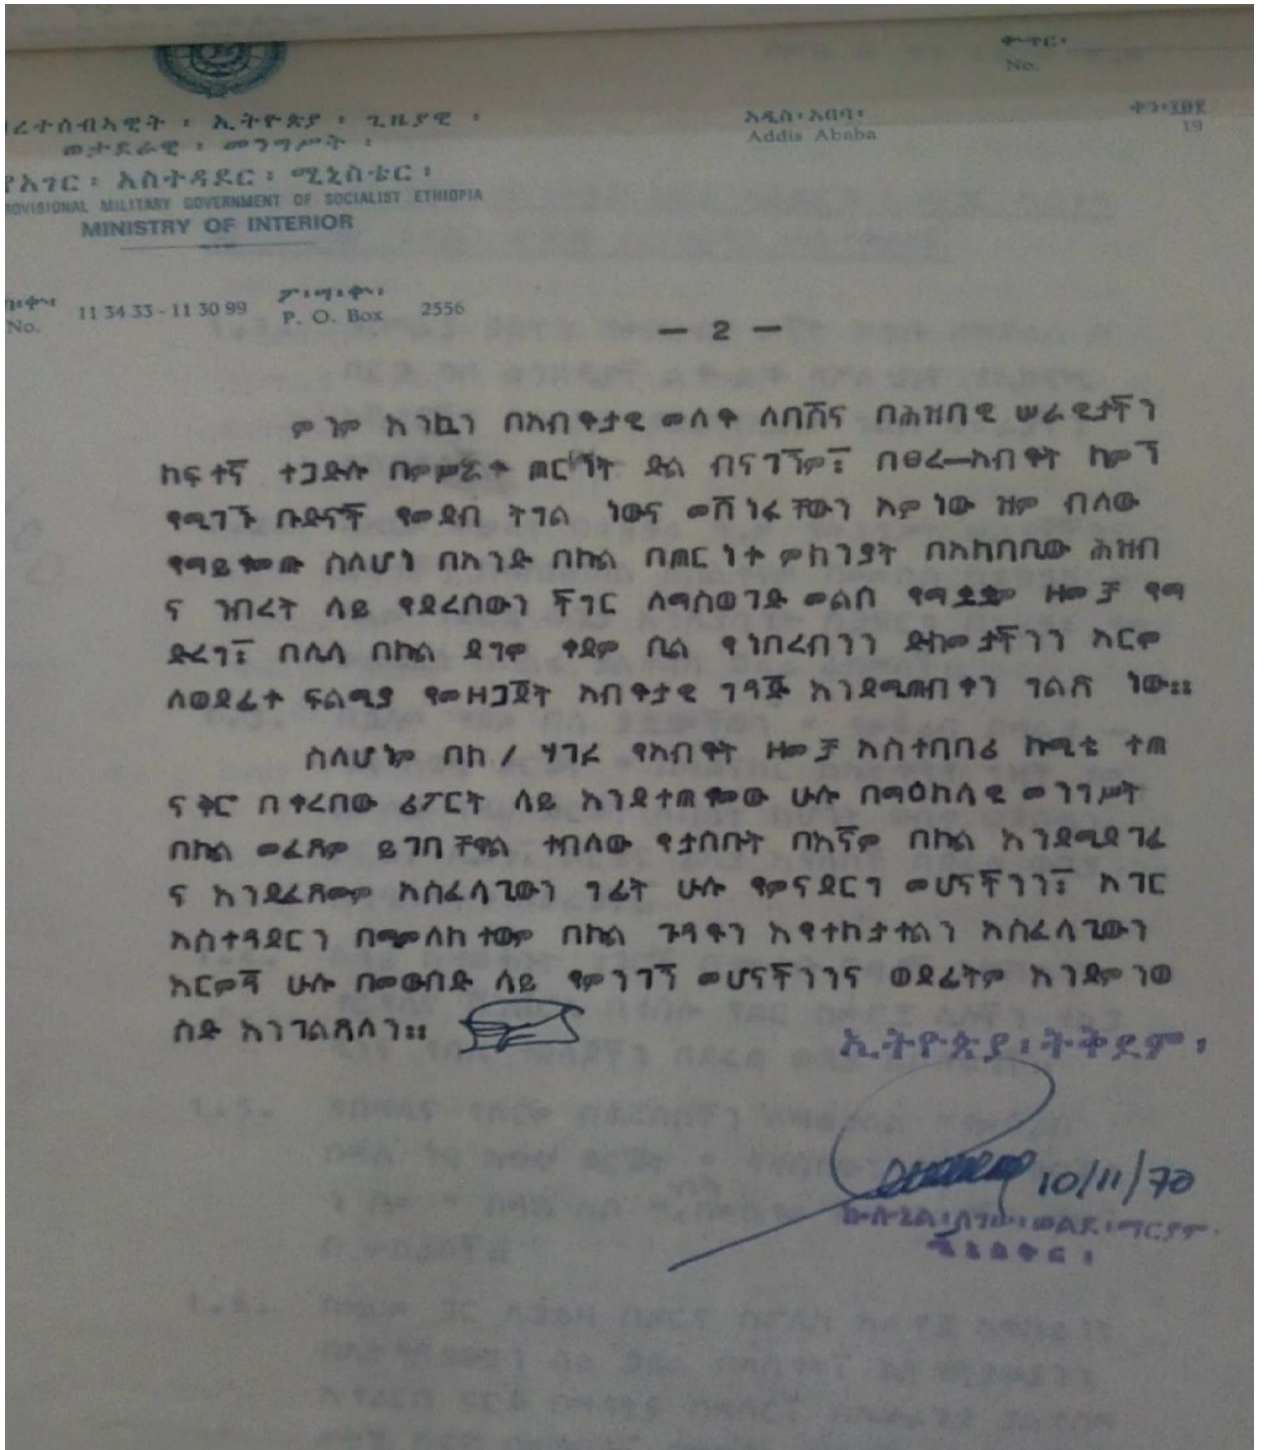 ቍጥር፡
No.
ኅብረተሰብአዊት ፡ ኢትዮጵያ ፡ ጊዜያዊ ፡
ወታደራዊ ፡ መንግሥት ፡
የአገር ፡ አስተዳደር ፡ ሚኒስቴር ፡
PROVISIONAL MILITARY GOVERNMENT OF SOCIALIST ETHIOPIA
MINISTRY OF INTERIOR
አዲስ ፡ አበባ ፡
Addis Ababa
ቀን
19
No. 11 34 33 - 11 30 99
ፖ፡ሣ፡ቍ፡
P. O. Box 2556
— 2 —
ምንም እንኳን በአብዮታዊ መለዮ ለባሽና በሕዝባዊ ሠራዊታችን
ከፍተኛ ተጋድሎ በምሥራቅ ጦርነት ድል ብናገኝም፤ በፀረ—አብዮት ካምኘ
የሚገኙ ቡድናች የመደብ ትግል ነውና መሸነፋቸውን አምነው ዝም ብለው
የማይቀመጡ ስለሆነ በአንድ በኩል በጦርነቱ ምክንያት በአካባቢው ሕዝብ
ና ንብረት ላይ የደረሰውን ችግር ለማስወገድ መልሶ የማቋቋም ዘመቻ የማ
ድረግ፤ በሌላ በኩል ደግሞ ቀደም ሲል የነበረብንን ድክመታችንን አርሞ
ለወደፊቱ ፍልሚያ የመዘጋጀት አብዮታዊ ግዳጅ እንደሚጠብቀን ግልጽ ነው።
ስለሆነም በክ/ሃገሩ የአብዮት ዘመቻ አስተባባሪ ኮሚቴ ተጠ
ናቅሮ በቀረበው ሪፖርት ላይ እንደተጠቀመው ሁሉ በማዕከላዊ መንግሥት
በኩል መፈጸም ይገባቸዋል ተብለው የታሰቡት በእኛም በኩል እንዲደገፉ
ና እንዲፈጸሙም አስፈላጊውን ግፊት ሁሉ የምናደርግ መሆናችንን፤ አገር
አስተዳደርን በሚመለከተውም በኩል ጉዳዩን እየተከታተልን አስፈላጊውን
እርምጃ ሁሉ በመውሰድ ላይ የምንገኝ መሆናችንንና ወደፊትም እንደምንወ
ስድ እንገልጻለን።
ኢትዮጵያ፡ትቅደም፡
10/11/70
ኮሎኔል፡ለገሠ፡ወልደ፡ማርያም
ሚኒስቴር፡